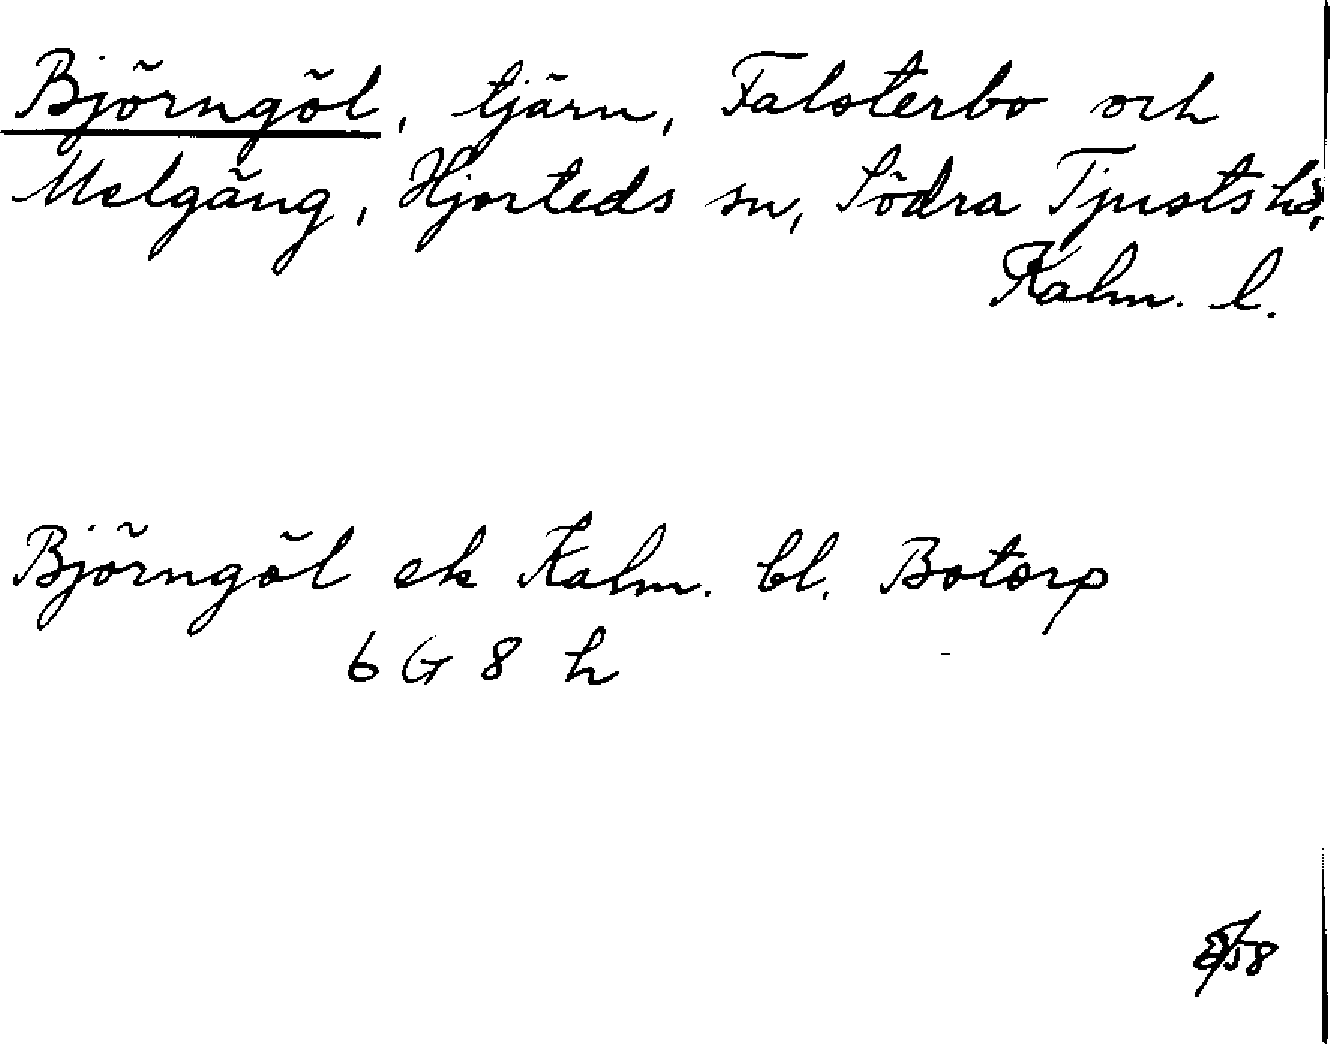 Björngöl, tjärn, Falsterbo och
Melgäng, Hjorteds sn, Södra Tjusts hd,
Kalm. l.
Björngöl ek Kalm. bl. Botorp
6 G 8 h